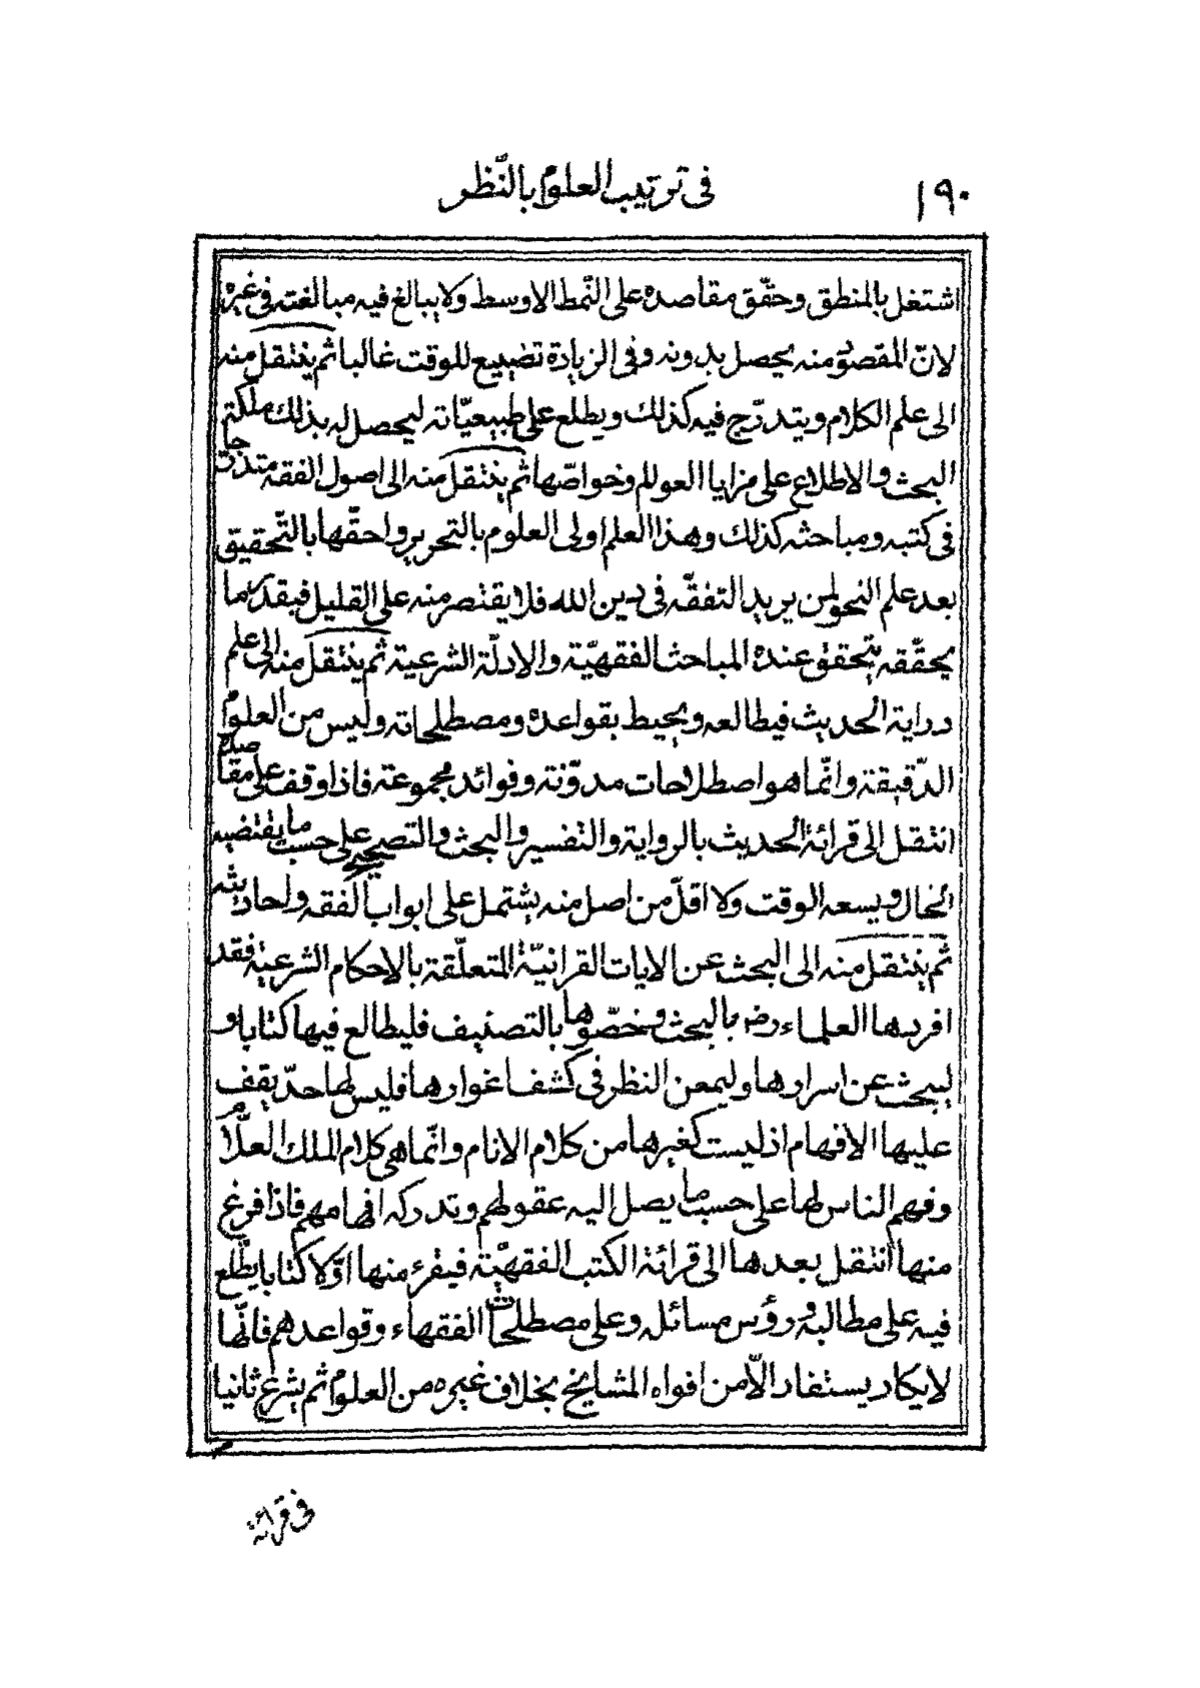 ١٩٠
فى ترتيب العلوم بالنّظر
اشتغل بالمنطق وحقّق مقاصده على النّمط الاوسط ولا يبالغ فيه مبالغته فى غيره
لانّ المقصود منه يحصل بدونه وفى الزيادة تضييع للوقت غالبا ثم ينتقل منه
الى علم الكلام ويتدرّج فيه كذلك ويطلع على طبيعيّاته ليحصل له بذلك ملكة
البحث والاطلاع على مزايا العوالم وخواصّها ثم ينتقل منه الى اصول الفقه متدرجا
فى كتبه ومباحثه كذلك وهذا العلم اولى العلوم بالتحرير واحقّها بالتّحقيق
بعد علم النحو لمن يريد التفقّه فى دين الله فلا يقتصر منه على القليل فبقدر ما
يحقّقه يتحقق عنده المباحث الفقهيّة والادلّة الشرعية ثم ينتقل منه الى علم
دراية الحديث فيطالعه ويحيط بقواعده ومصطلحاته وليس من العلوم
الدّقيقة وانّما هو اصطلاحات مدوّنة وفوائد مجموعة فاذا وقف على مقاصده
انتقل الى قرائة الحديث بالرواية والتفسير والبحث والتصحيح على حسب ما يقتضيه
الحال ويسعه الوقت ولا اقلّ من اصل منه يشتمل على ابواب الفقه واحاديثه
ثم ينتقل منه الى البحث عن الايات القرانيّة المتعلّقة بالاحكام الشرعية فقد
افردها العلماء رض بالبحث وخصّوها بالتصنيف فليطالع فيها كتابا و
ليبحث عن اسرارها وليمعن النظر فى كشف اغوارها فليس لها حدّ يقف
عليها الافهام اذ ليست كغيرها من كلام الانام وانّما هى كلام الملك العلّام
وفهم الناس لها على حسب ما يصل اليه عقولهم وتدركه افهامهم فاذا فرغ
منها انتقل بعدها الى قرائة الكتب الفقهيّة فيقرء منها اوّلا كتابا يطّلع
فيه على مطالبه ورؤس مسائله وعلى مصطلحات الفقهاء وقواعدهم فانّها
لا يكاد يستفاد الّا من افواه المشايخ بخلاف غيره من العلوم ثم يشرع ثانيا
فى قرائة